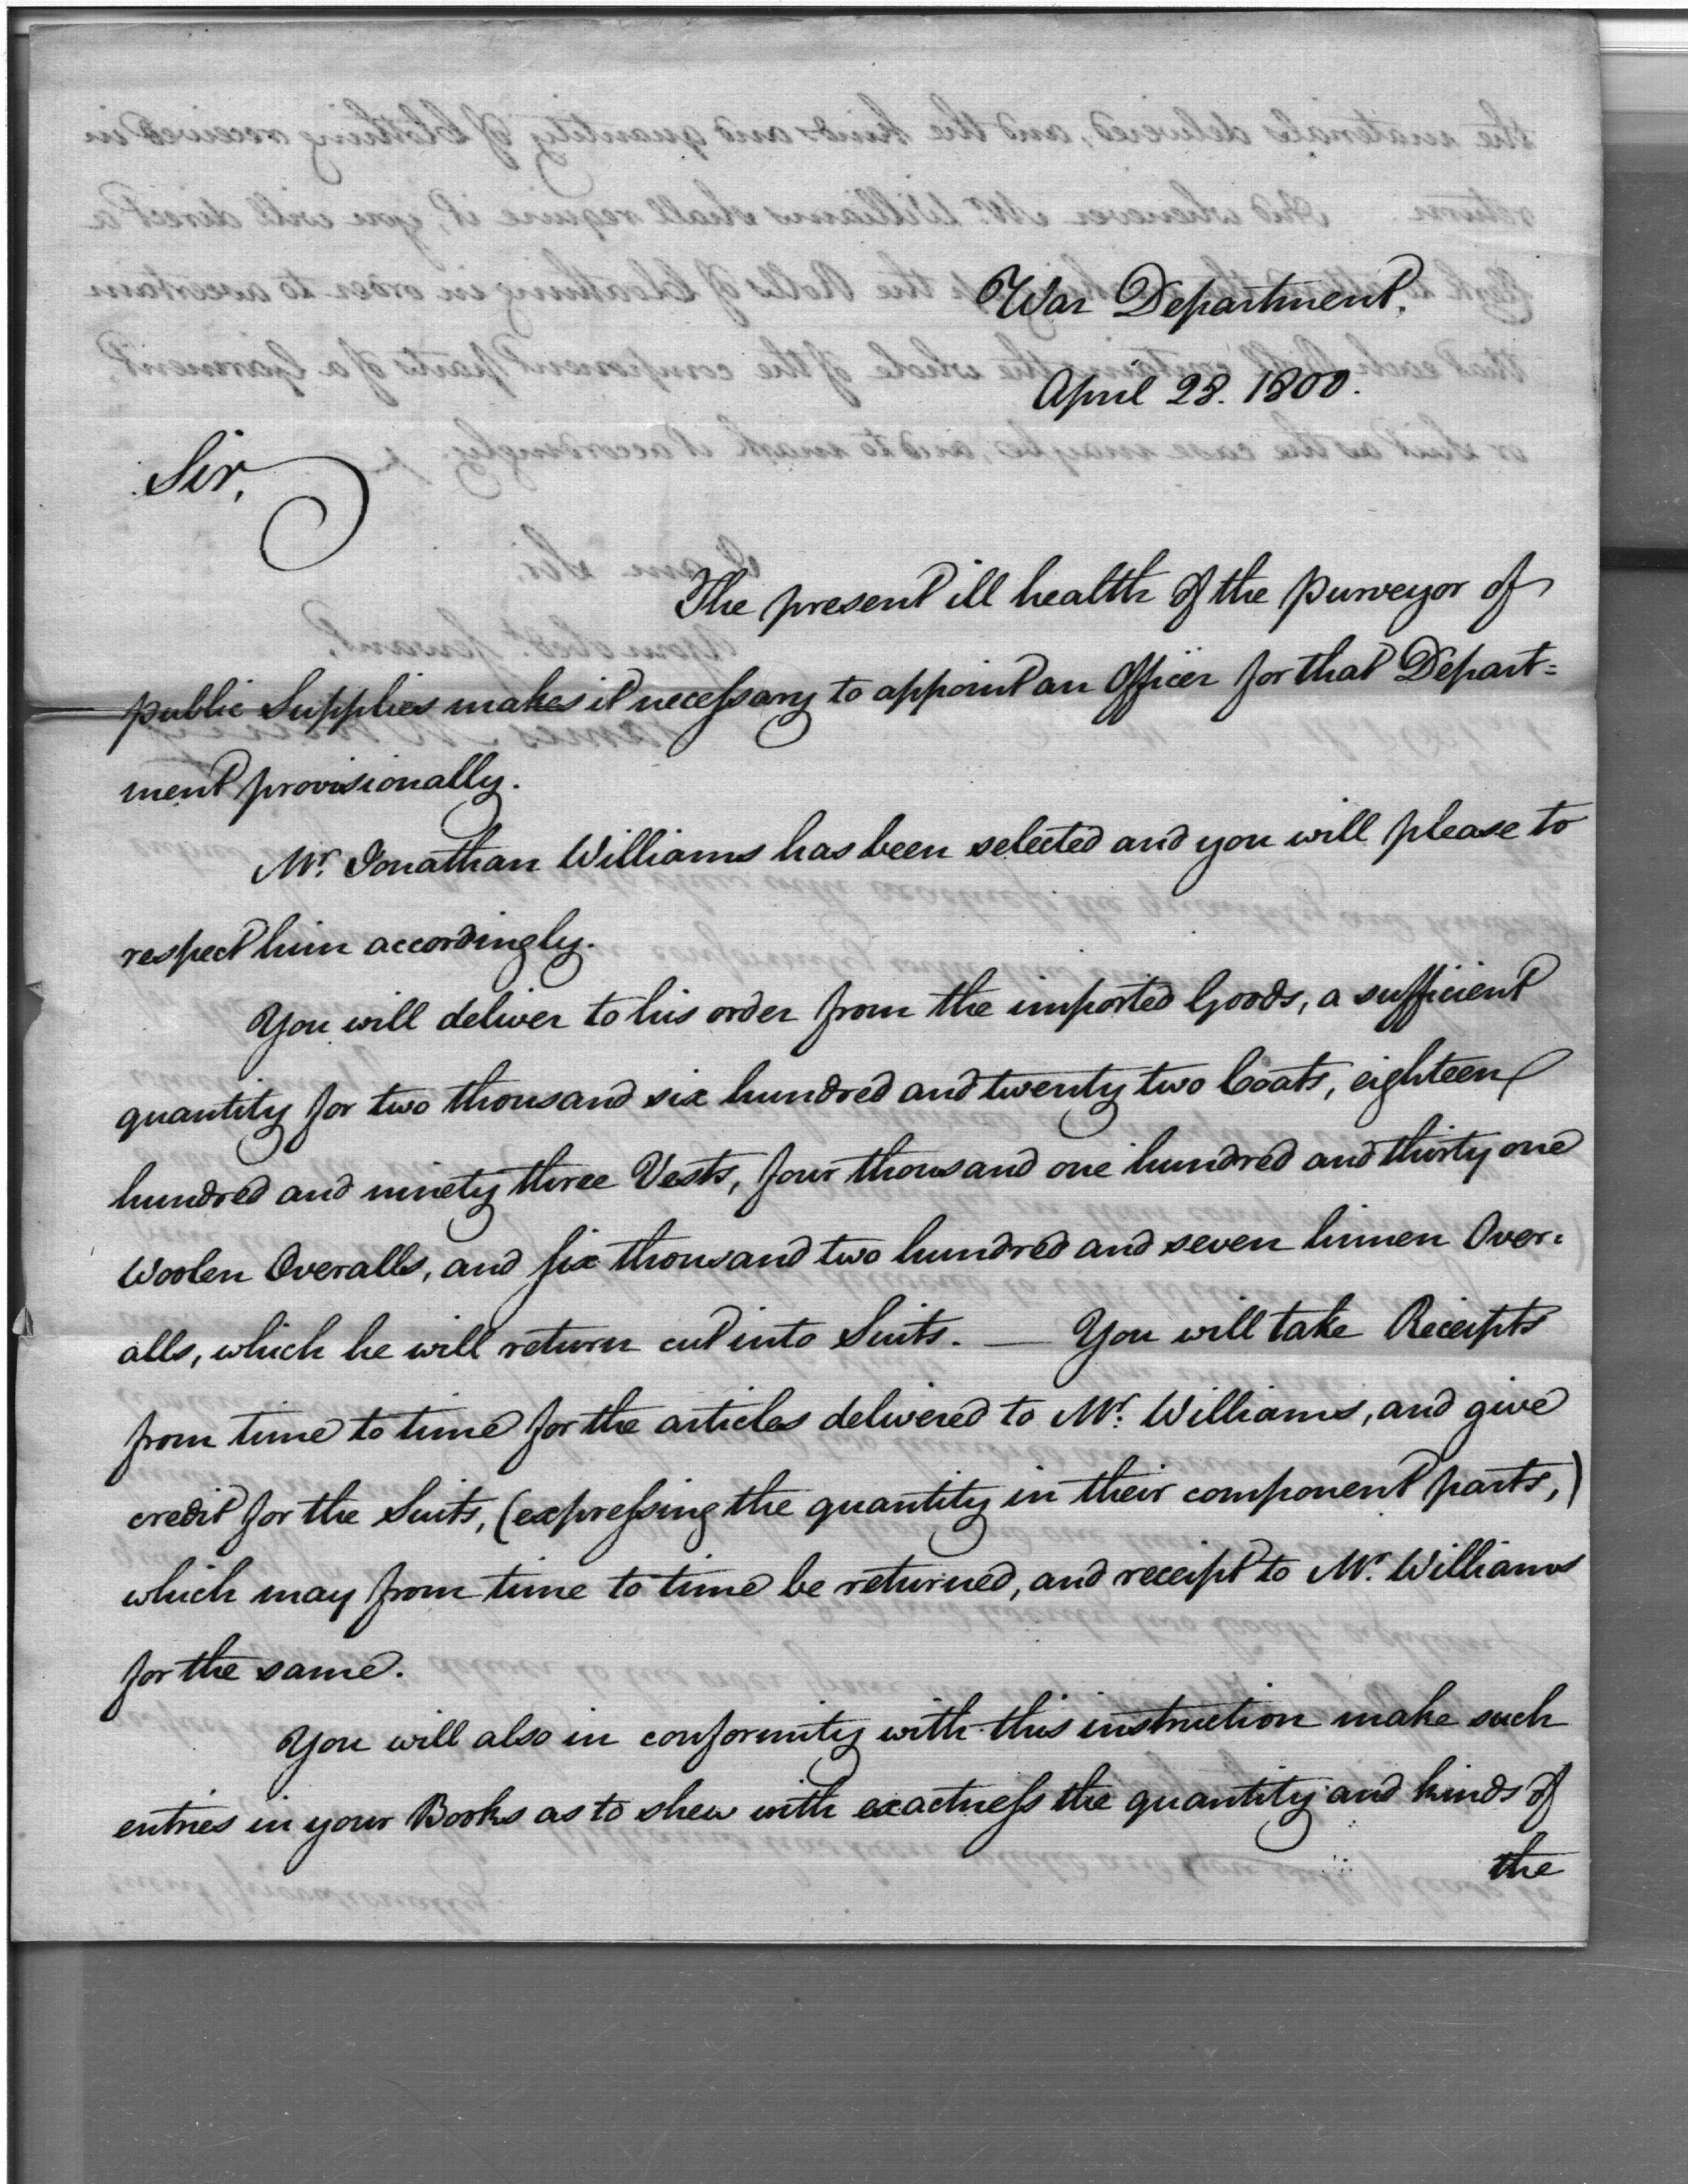 War Department,
April 28. 1800.
Sir,
The present ill health of the Purveyor of
public Supplies makes it necessary to appoint an Officer for that Depart=
ment provisionally.
Mr. Jonathan Williams has been selected and you will please to
respect him accordingly.
You will deliver to his order from the imported Goods, a sufficient
quantity for two thousand six hundred and twenty two Coats, eighteen
hundred and ninety three Vests, four thousand one hundred and thirty one
Woolen Overalls, and six thousand two hundred and seven linnen Over=
alls, which he will return cut into Suits. — You will take Receipts
from time to time for the articles delivered to Mr. Williams, and give
credit for the Suits, (expressing the quantity in their component parts,)
which may from time to time be returned, and receipt to Mr. Williams
for the same.
You will also in conformity with this instruction make such
entries in your Books as to shew with exactness the quantity and kinds of
the